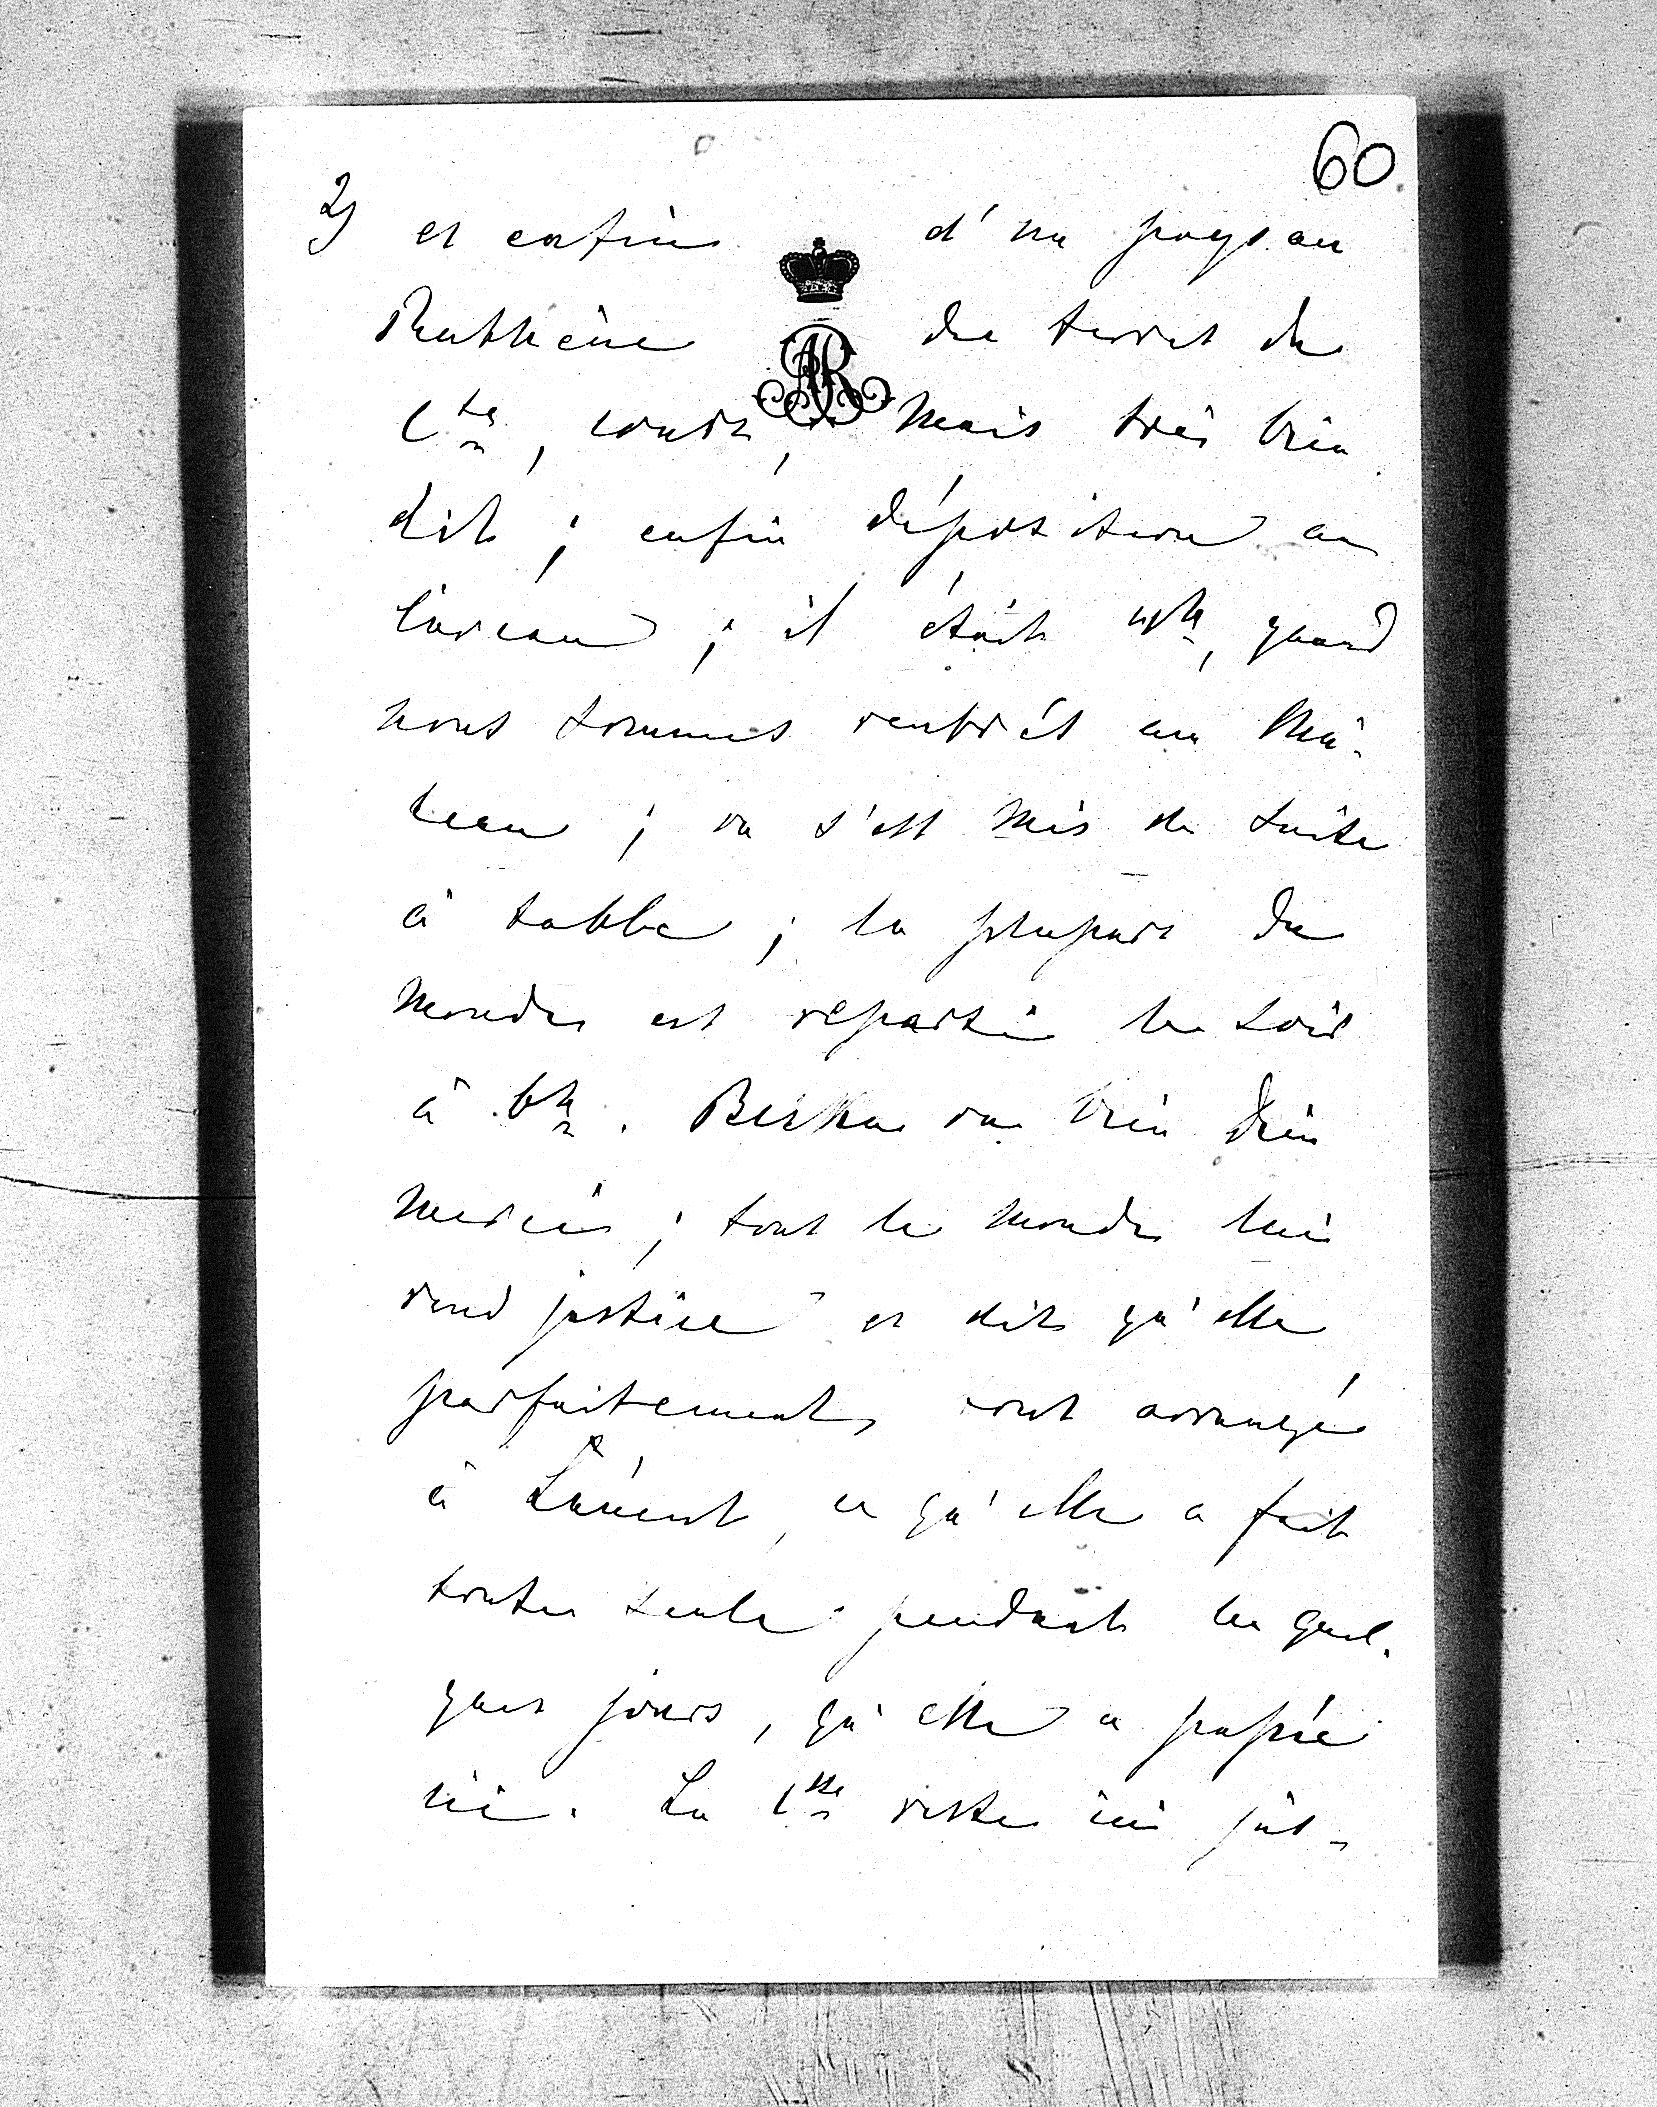 60
2) et enfin d'un paysan
Ruthène des terres du
Cte, court, mais très bien
dit; enfin déposition au
caveau; il était 4h, quand
nous sommes rentrés au châ-
teau; on s'est mis de suite
à table; la plupart du
monde est repartie le soir
à 6h. Beska va bien Dieu
merci; tout le monde lui
rend justice et dit qu'elle
parfaitement tout arrangé
à Łańcut, ce qu'elle a fait
toute seule pendant les quel-
ques jours, qu'elle a passée
ici. La Ctsse reste ici jus-